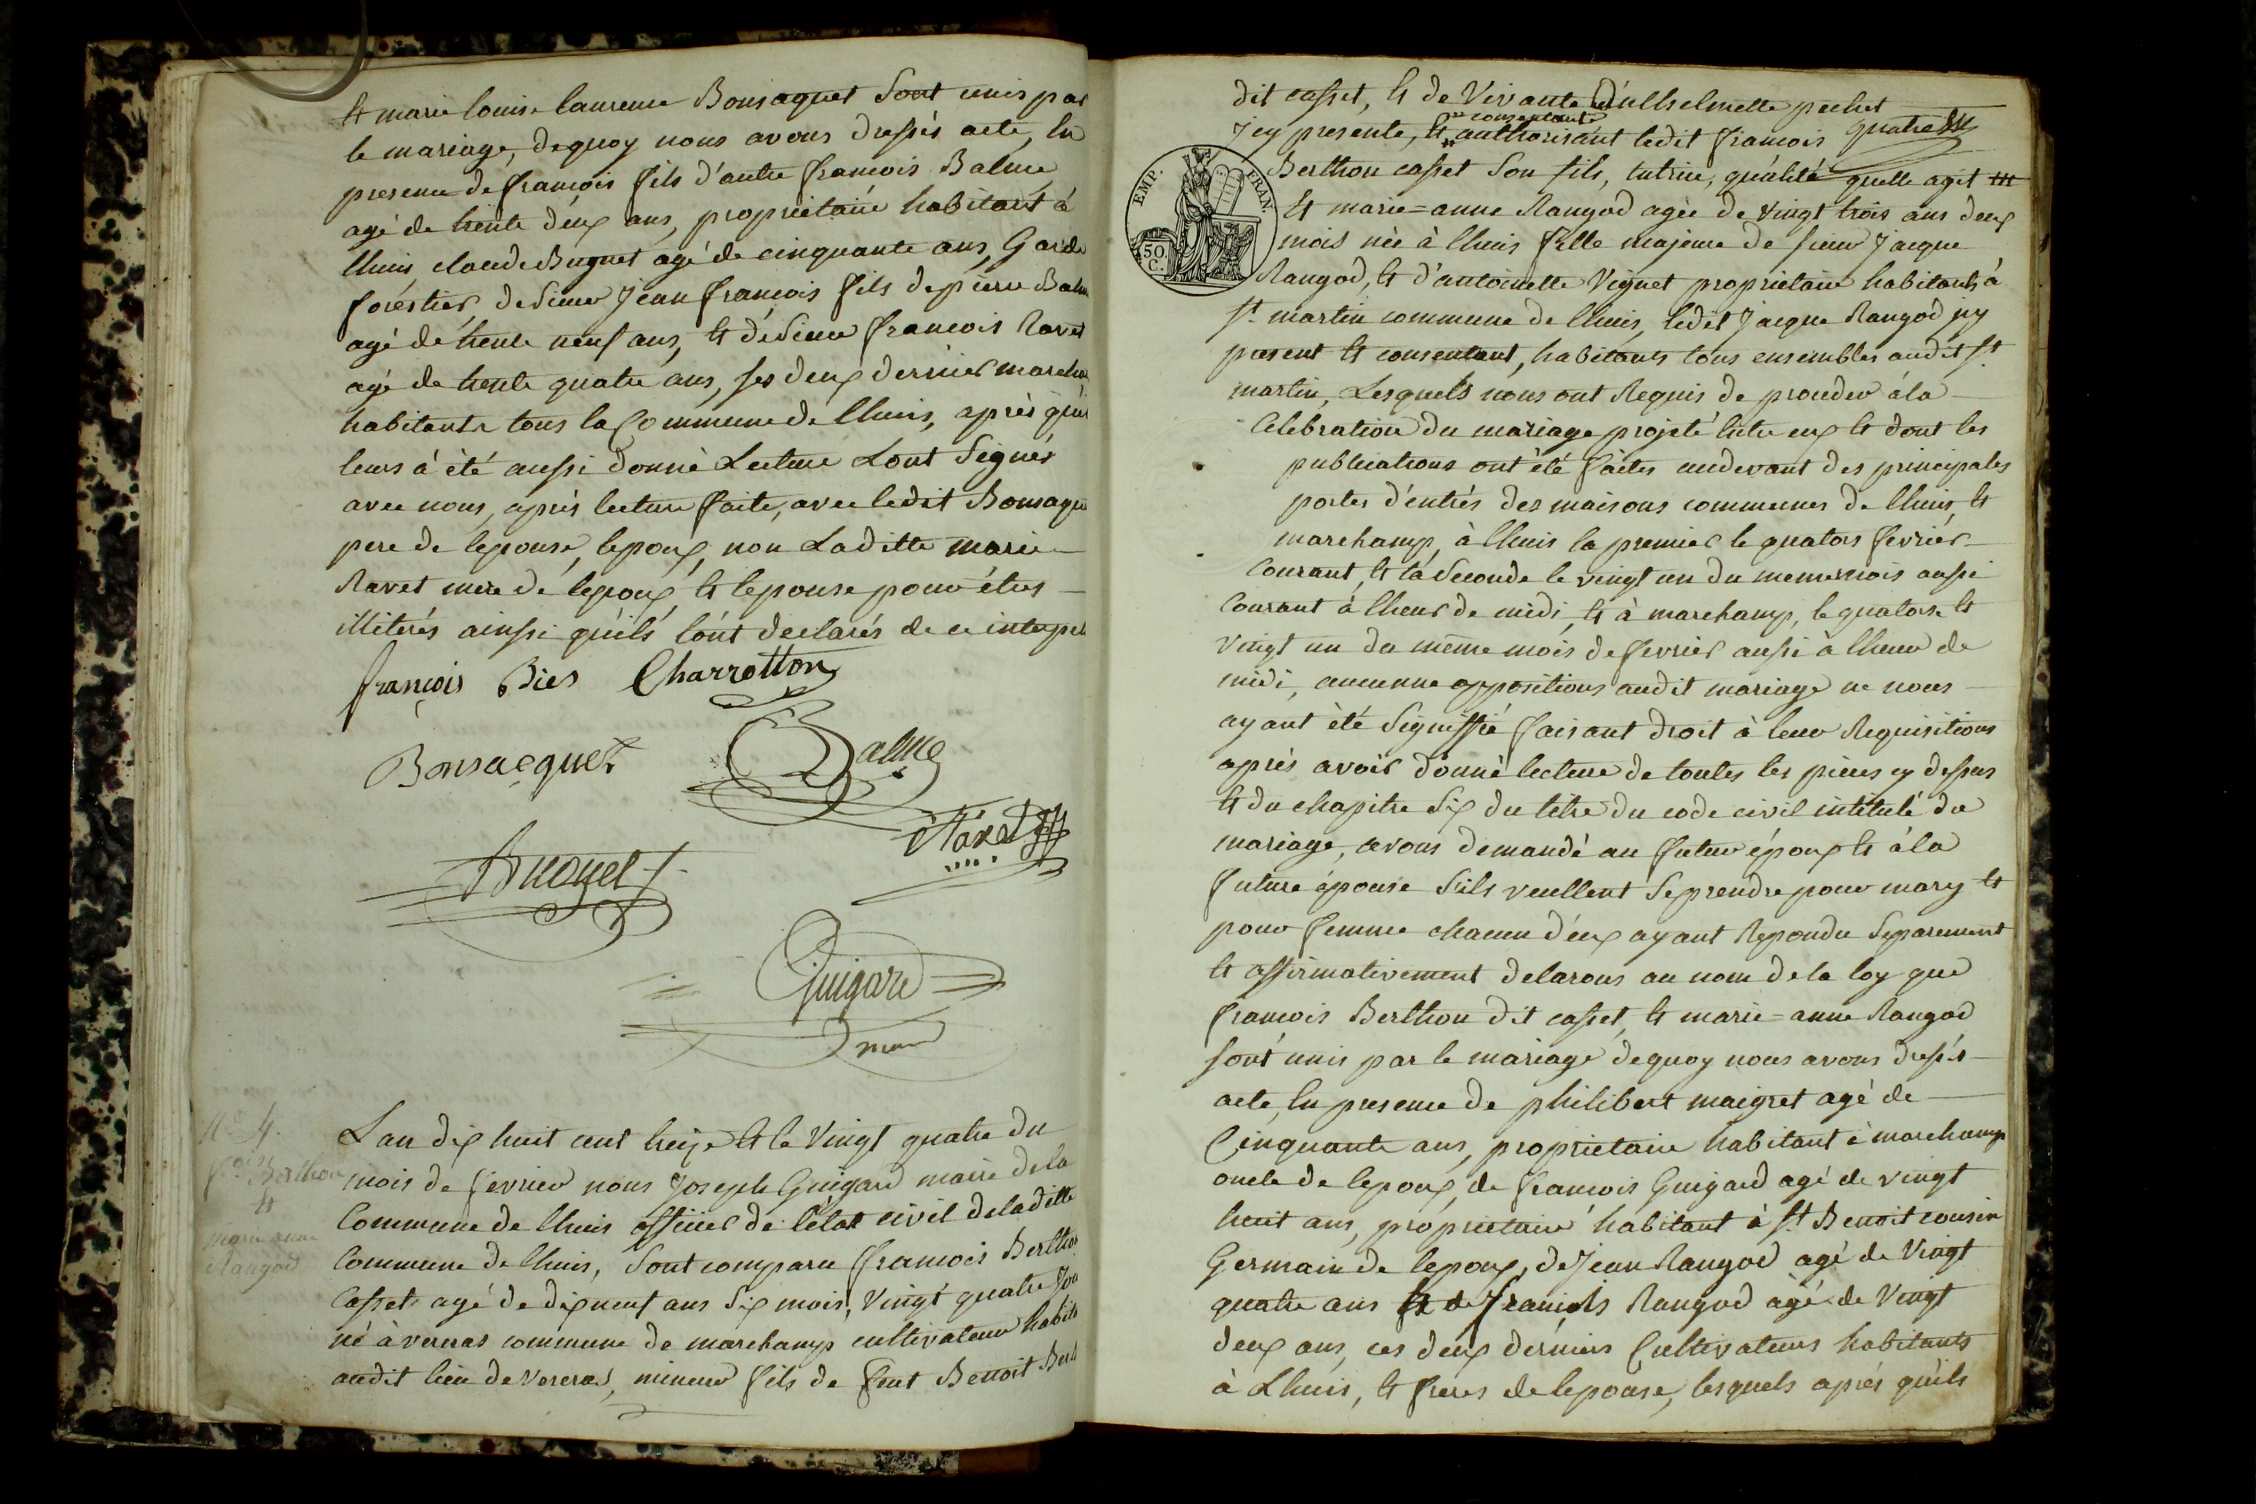 Et marie louise laurence Bonsaquet Sont unis par
le mariage, dequoy nous avons dressés acte, En
presence de françois fils d'autre françois Balme
agé de trente deux ans, propriétaire habitant à
lhuis, claude Buguet agé de cinquante ans, Garde
forestier, de Sieur Jean françois fils de pierre Balm
agé de trente neuf ans, Et de Sieur françois Ravet
agé de trente quatre ans, ses deux dernier marchan
habitants tous la Commune de lhuis, après quil
leurs à été aussi donné Lecture Lont Signés
avec nous, après lecture faite, avec ledit Bonsaque
pere de lepouse, lepoux, non Laditte marie
Ravet mere de lepoux Et lepouse pour étres
illiterés ainsi quils lont declarés de ce interpel
françois Bies Charrotton
Bonsacquet Balme
Ravet
Buguet
Guigard
maire
N° 4.
fçois Berthon
Et
marie anne
Rangod
Lan dix huit cent treize Et le Vingt quatre du
mois de fevrier nous Joseph Guigard maire dela
Commune de lhuis officier de létat civil deladitte
Commune de lhuis, Sont comparu françois Berthon
Casset agé de dix neuf ans Six mois, Vingt quatre Jou
né à veras commune de marchamp cultivateur habita
audit lieu de Veras, mineur fils de feut Benoit Bert
dit casset, Et de Vivante d'ulhelmette pechet
jcy presente, Et consentante authorisant ledit françois quatre
EMP. FRAN.
50. C.
Berthon casset Son fils, tutrice, quéalité quelle agit
Et marie=anne Rangod agée de vingt trois ans deux
mois née à lhuis fille majeure de sieur Jacque
Rangod, Et d'antoinette Viguet propriétaire habitants à
st martin commune de lhuis, ledit Jacque Rangod jcy
present Et consentant, habitants tous ensembles audit st
martin, Lesquels nous ont Requis de proceder àla
Celebration du mariage projeté Entre eux Et dont les
publications ont été faites audevant des principales
portes d'entrés des maisons communes de lhuis, Et
marchamp, à lhuis la premier le quators fevrier
Courant, Et la Seconde le vingt un du mememois aussi
Courant à lheur de midi, Et à marchamp, le quatorse Et
vingt un du même mois de fevrier aussi à lheur de
midi, aucunne oppositions audit mariage ne nous
ayant été Signiffié faisant droit à leur Requisitions
après avoir donné lecture de toutes les pieces cy dessus
Et du chapitre Six du titre du code civil intitulé du
mariage, avons demandé au futur époux Et àla
future épouse Sils veullent Se prendre pour mary Et
pour femme chacun d'eux ayant Repondu Separement
Et affirmativement delarons au nom de la loy que
françois Berthon dit casset, Et marie=anne Rangod
sont unis par le mariage dequoy nous avons dressés
acte En presence de philibert maigret agé de
Cinquante ans, proprietaire habitant à marchamp
oncle de lepoux, de françois Guigard agé de vingt
huit ans, propriétaire habitant à st Benoit cousin
Germain de lepoux, de Jean Rangod agé de Vingt
quatre ans Et de françois Rangod àgé de Vingt
deux ans, ces deux derniers Cultivateurs habitants
à Lhuis, Et freres de lepouse, lesquels après quils